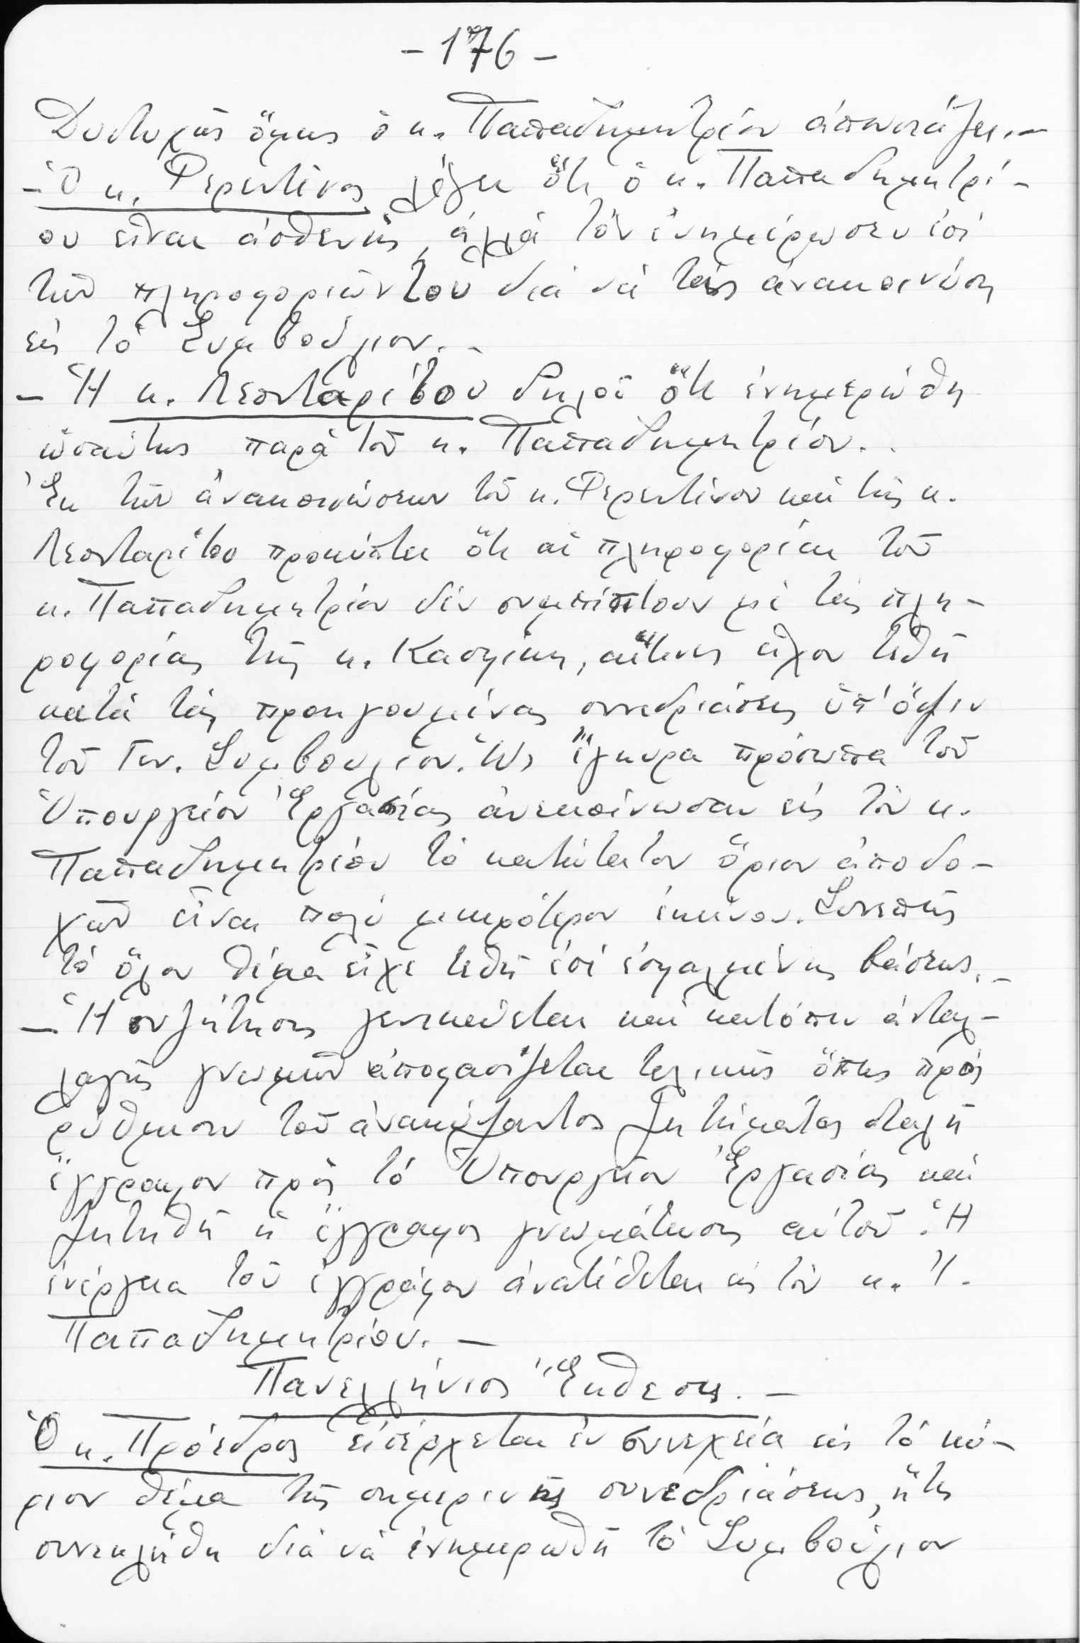 - 176 -
Δυστυχῶς ὅμως ὁ κ. Παπαδημητρίου ἀπουσιάζει.-
- Ὁ κ. Φερεντῖνος λέγει ὅτι ὁ κ. Παπαδημητρί-
ου εἶναι ἀσθενής, ἀλλά τόν ἐνημέρωσεν ἐπί
τῶν πληροφοριῶν του διά νά τάς ἀνακοινώσῃ
εἰς τό Συμβούλιον.-
- Ἡ κ. Λεονταρίτου δηλοῖ ὅτι ἐνημερώθη
ὡσαύτως παρά τοῦ κ. Παπαδημητρίου..
Ἐκ τῶν ἀνακοινώσεων τοῦ κ. Φερεντίνου καί τῆς κ.
Λεονταρίτου προκύπτει ὅτι αἱ πληροφορίαι τοῦ
κ. Παπαδημητρίου δέν συμπίπτουν μέ τάς πλη-
ροφορίας τῆς κ. αἵτινες εἶχον τεθῆ
κατά τάς προηγουμένας συνεδριάσεις ὑπ' ὄψιν
τοῦ Γεν. Συμβουλίου. Ὡς ἔγκυρα πρόσωπα τοῦ
Ὑπουργείου Ἐργασίας ἀνεκοίνωσαν εἰς τόν κ.
Παπαδημητρίου τό κατώτατον ὅριον ἀποδο-
χῶν εἶναι πολύ μικρότερον ἐκείνου. Συνεπῶς
τό ὅλον θέμα εἶχε τεθῆ ἐπί ἐσφαλμένης βάσεως.-
- Ἡ συζήτησις γενικεύεται καί κατόπιν ἀνταλ-
λαγῆς γνωμῶν ἀποφασίζεται τελικῶς ὅπως πρός
ρύθμισιν τοῦ ἀνακύψαντος ζητήματος σταλῆ
ἔγγραφον πρός τό Ὑπουργεῖον Ἐργασίας καί
ζητηθῆ ἡ ἔγγραφος γνωμάτευσις αὐτοῦ. Ἡ
ἐνέργεια τοῦ ἐγγράφου ἀνατίθεται εἰς τόν κ. Ἰ.
Παπαδημητρίου. -
Πανελλήνιος Ἔκθεσις. -
Ὁ κ. Πρόεδρος εἰσέρχεται ἐν συνεχείᾳ εἰς τό κύ-
ριον θέμα τῆς σημερινῆς συνεδριάσεως, ἥτις
συνεκλήθη διά νά ἐνημερωθῆ τό Συμβούλιον